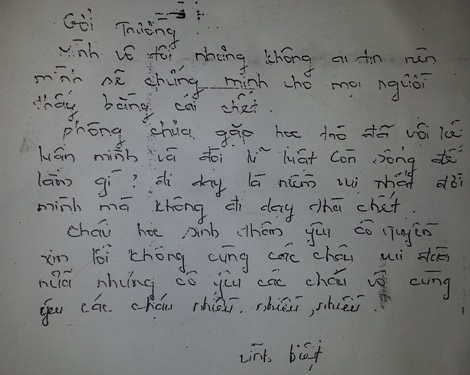 Gởi Trưởng
mình vô tội nhưng không ai tin nên
mình sẽ chứng minh cho mọi người
thấy bằng cái chết.
phòng chưa gặp học trò đã vội kế
luận mình và đòi kỉ luật Còn sống để
làm gì? đi dạy là niềm vui nhất đời
mình mà không đi dạy thà chết.
Cháu học sinh thân yêu cô Duyên
xin lỗi không cùng các cháu vui
nữa nhưng cô yêu các cháu vô cùng
yêu các cháu nhiều, nhiều, nhiều.
vĩnh biệt